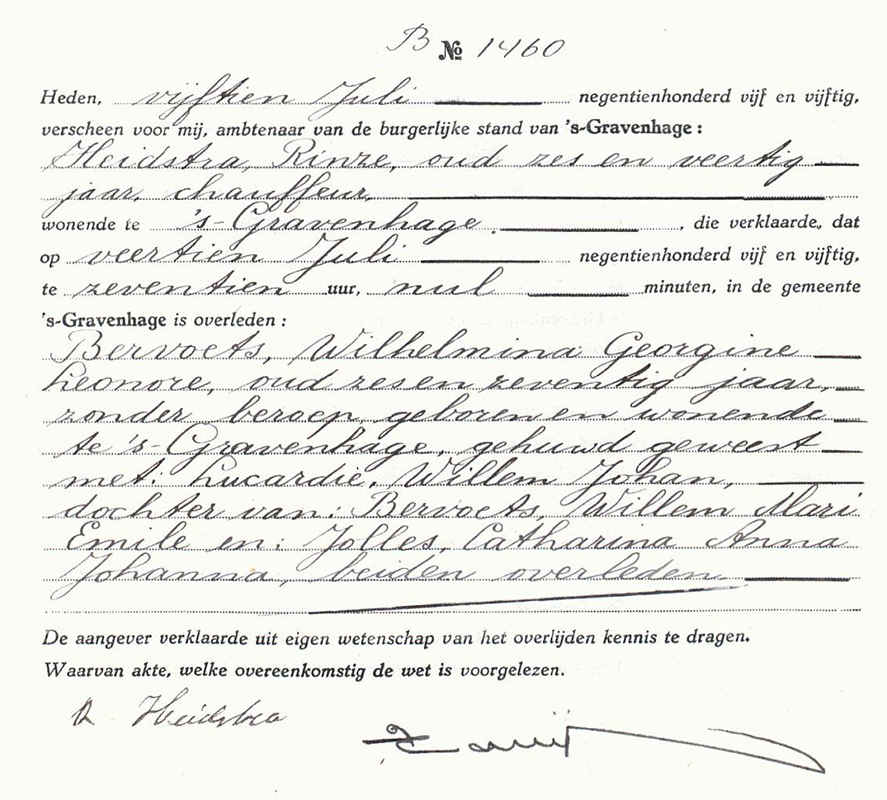 B № 1460
Heden, vijftien Juli negentienhonderd vijf en vijftig,
verscheen voor mij, ambtenaar van de burgerlijke stand van 's-Gravenhage:
Heidstra, Rinze, oud zes en veertig
jaar, chauffeur,
wonende te 's-Gravenhage, die verklaarde, dat
op veertien Juli negentienhonderd vijf en vijftig,
te zeventien uur, nul minuten, in de gemeente
's-Gravenhage is overleden:
Bervoets, Wilhelmina Georgine
Leonore, oud zes en zeventig jaar,
zonder beroep, geboren en wonende
te 's-Gravenhage, gehuwd geweest
met: Lucardie, Willem Johan,
dochter van: Bervoets, Willem Mari
Emile en: Jolles, Catharina Anna
Johanna, beiden overleden.
De aangever verklaarde uit eigen wetenschap van het overlijden kennis te dragen.
Waarvan akte, welke overeenkomstig de wet is voorgelezen.
R Heidstra